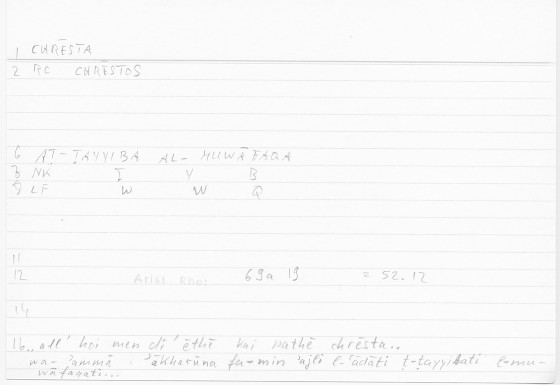 1 CHRĒSTA
2 RC CHRĒSTOS
6 AṬ-ṬAYYIBA AL-MUWĀFAQA
8 NK Ṭ Y B
9 LF W W Q
11
12 Arist Rhet 69a 19 = 52.12
14
16 .. all' hoi men di' ēthē kai pathē chrēsta..
wa-'ammā 'ākharūna fa-min 'ajli l-'ādāti ṭ-ṭayyibati l-mu-
wāfaqati...